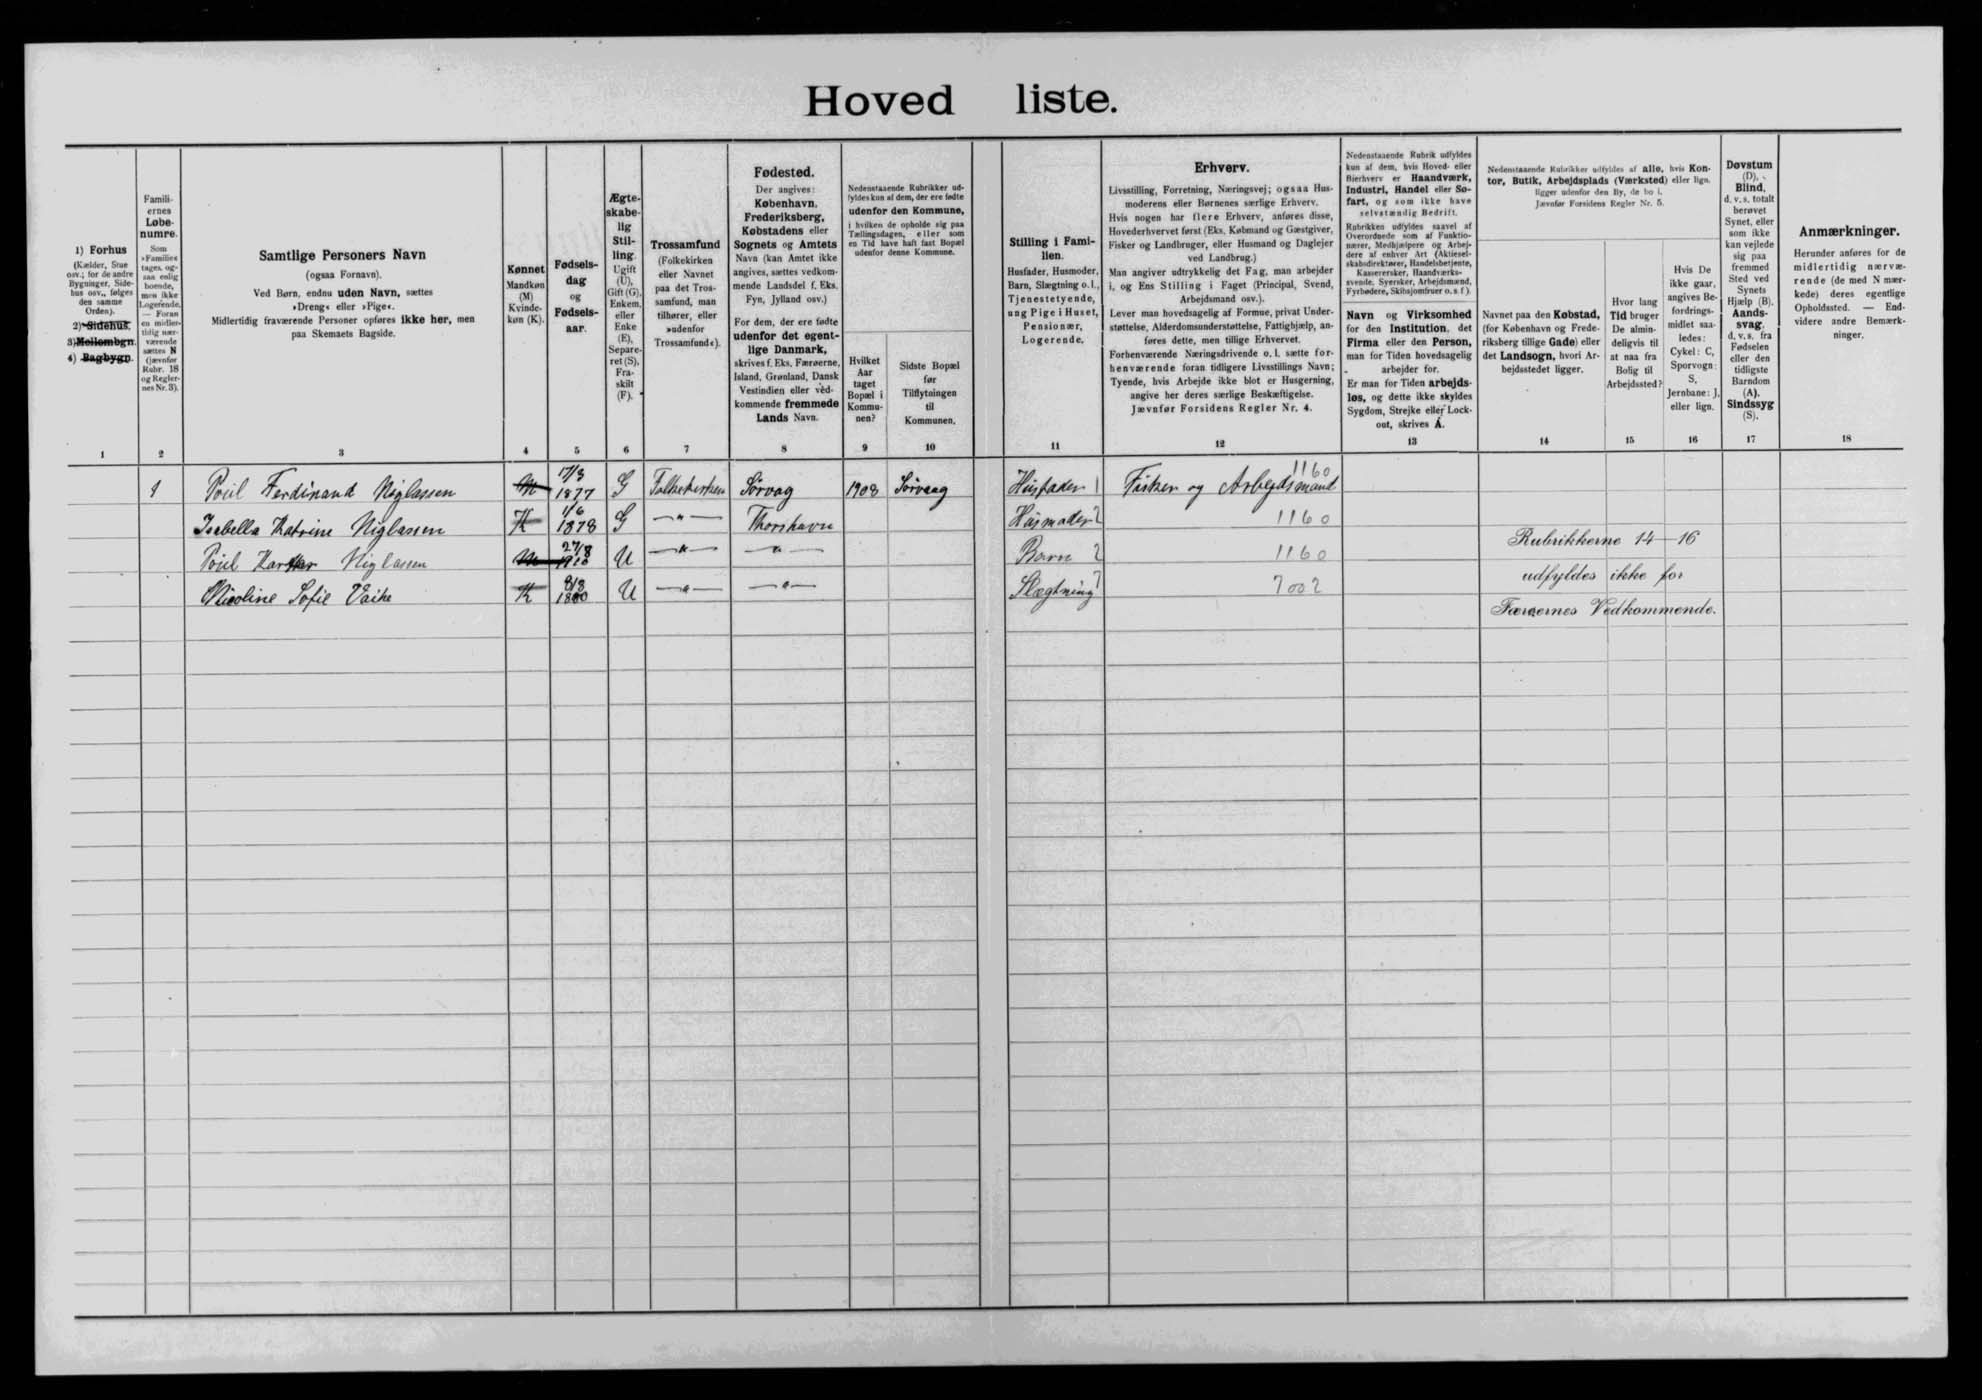 Hoved liste.
1) Forhus
(Kælder, Stue
osv.; for de andre
Bygninger, Side-
hus osv., følges
den samme
Orden).
2) Sidehus.
3) Mellembgn.
4) Bagbygn.
Famili-
ernes
Løbe-
numre.
Som
»Familie«
tages, og-
saa enlig
boende,
men ikke
Logerende.
— Foran
en midler-
tidig nær-
værende
sættes N
(jævnfør
Rubr. 18
og Regler-
nes Nr. 3).
Samtlige Personers Navn
(ogsaa Fornavn).
Ved Børn, endnu uden Navn, sættes
»Dreng« eller »Pige«.
Midlertidig fraværende Personer opføres ikke her, men
paa Skemaets Bagside.
Kønnet
Mandkøn
(M)
Kvinde-
køn (K).
Fødsels-
dag
og
Fødsels-
aar.
Ægte-
skabe-
lig
Stil-
ling.
Ugift
(U),
Gift (G),
Enkem.
eller
Enke
(E),
Separe-
ret (S),
Fra-
skilt
(F).
Trossamfund
(Folkekirken
eller Navnet
paa det Tros-
samfund, man
tilhører, eller
»udenfor
Trossamfund«).
Fødested.
Der angives:
København,
Frederiksberg,
Købstadens eller
Sognets og Amtets
Navn (kan Amtet ikke
angives, sættes vedkom-
mende Landsdel f. Eks.
Fyn, Jylland osv.)
For dem, der ere fødte
udenfor det egent-
lige Danmark,
skrives f. Eks. Færøerne,
Island, Grønland, Dansk
Vestindien eller ved-
kommende fremmede
Lands Navn.
Nedenstaaende Rubrikker ud-
fyldes kun af dem, der ere fødte
udenfor den Kommune,
i hvilken de opholde sig paa
Tællingsdagen, eller som
en Tid have haft fast Bopæl
udenfor denne Kommune.
Hvilket
Aar
taget
Bopæl i
Kommu-
nen?
Sidste Bopæl
før
Tilflytningen
til
Kommunen.
Stilling i Fami-
lien.
Husfader, Husmoder,
Barn, Slægtning o.l.,
Tjenestetyende,
ung Pige i Huset,
Pensionær,
Logerende.
Erhverv.
Livsstilling, Forretning, Næringsvej; ogsaa Hus-
moderens eller Børnenes særlige Erhverv.
Hvis nogen har flere Erhverv, anføres disse,
Hovederhvervet først (Eks. Købmand og Gæstgiver,
Fisker og Landbruger, eller Husmand og Daglejer
ved Landbrug.)
Man angiver udtrykkelig det Fag, man arbejder
i, og Ens Stilling i Faget (Principal, Svend,
Arbejdsmand osv.).
Lever man hovedsagelig af Formue, privat Under-
støttelse, Alderdomsunderstøttelse, Fattighjælp, an-
føres dette, men tillige Erhvervet.
Forhenværende Næringsdrivende o. l. sætte for-
henværende foran tidligere Livsstillings Navn;
Tyende, hvis Arbejde ikke blot er Husgerning,
angive her deres særlige Beskæftigelse.
Jævnfør Forsidens Regler Nr. 4.
Nedenstaaende Rubrik udfyldes
kun af dem, hvis Hoved- eller
Bierhverv er Haandværk,
Industri, Handel eller Sø-
fart, og som ikke have
selvstændig Bedrift.
Rubrikken udfyldes saavel af
Overordnede som af Funktio-
nærer, Medhjælpere og Arbej-
dere af enhver Art (Aktiesel-
skabsdirektører, Handelsbetjente,
Kasserersker, Haandværks-
svende, Syersker, Arbejdsmænd,
Fyrbødere, Skibsjomfruer o. s. f.).
Navn og Virksomhed
for den Institution, det
Firma eller den Person,
man for Tiden hovedsagelig
arbejder for.
Er man for Tiden arbejds-
løs, og dette ikke skyldes
Sygdom, Strejke eller Lock-
out, skrives A.
Nedenstaaende Rubrikker udfyldes af alle, hvis Kon-
tor, Butik, Arbejdsplads (Værksted) eller lign.
ligger udenfor den By, de bo i.
Jævnfør Forsidens Regler Nr. 5.
Navnet paa den Købstad,
(for København og Frede-
riksberg tillige Gade) eller
det Landsogn, hvori Ar-
bejdsstedet ligger.
Hvor lang
Tid bruger
De almin-
deligvis til
at naa fra
Bolig til
Arbejdssted?
Hvis De
ikke gaar,
angives Be-
fordrings-
midlet saa-
ledes:
Cykel: C,
Sporvogn:
S,
Jernbane: J,
eller lign.
Døvstum
(D),
Blind,
d. v. s. totalt
berøvet
Synet, eller
som ikke
kan vejlede
sig paa
fremmed
Sted ved
Synets
Hjælp (B).
Aands-
svag,
d. v. s. fra
Fødselen
eller den
tidligste
Barndom
(A).
Sindssyg
(S).
Anmærkninger.
Herunder anføres for de
midlertidig nærvæ-
rende (de med N mær-
kede) deres egentlige
Opholdssted. — End-
videre andre Bemærk-
ninger.
1 2 3 4 5 6 7 8 9 10 11 12 13 14 15 16 17 18
1 Póul Ferdinand Niglassen M 17/3 1877 G Folkekirken Sörvag 1908 Sörvaag Húsfader 1 Fisker og Arbejdsmand 1160
Isabella Katrine Niglassen K 1/6 1878 G —"— Thorshavn Húsmoder 2 1160
Póul Niglassen M 27/8 U —"— —"— Barn 2 1160
Nicoline Sofie Vaike K U —"— —"— Slægtning 7 7002
Rubrikkerne 14—16
udfyldes ikke for
Færøernes Vedkommende.